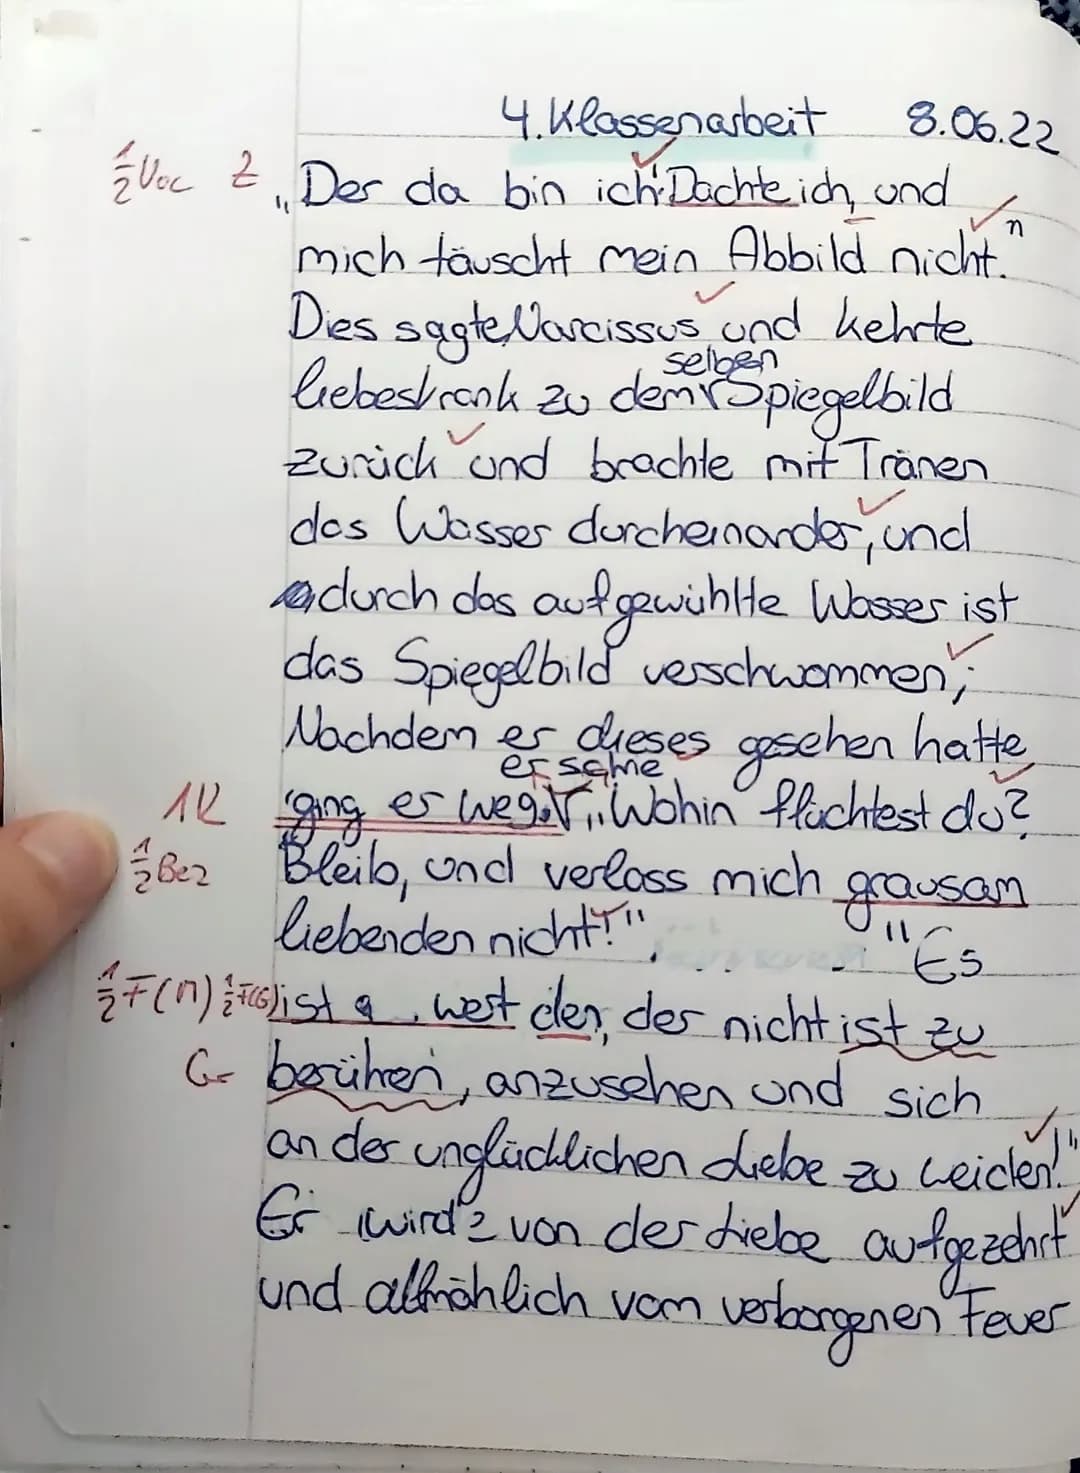 4. Klassenarbeit 8.06.22
½Voc Z „Der da bin ich" Dachte ich, und
mich täuscht mein Abbild nicht." n
Dies sagte Narcissus und kehrte
selben
liebeskrank zu dem Spiegelbild
zurück und brachte mit Tränen
das Wasser durcheinander, und
durch das aufgewühlte Wasser ist
das Spiegelbild verschwommen;
Nachdem er dieses gesehen hatte
er schrie
1K ging er weg. „Wohin flüchtest du?
½Bez Bleib, und verlass mich grausam
liebenden nicht!"
"Es
½F(n) ½F(G) ist den, der nicht ist zu
Gr berühen, anzusehen und sich
an der unglücklichen Liebe zu weiden!"
Er wird von der Liebe aufgezehrt
und allmählich vom verborgenen Feuer